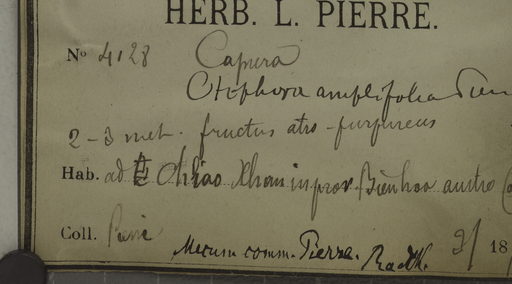 HERB. L. PIERRE.
Nº 4128 Capura
Otophora amplifolia Pierr
2-3 met. fructus atro-purpureus
Hab. ad Chiao Xhan in prov. Bienhoa austro
Coll. Pierre
Mecum comm. Pierre. Radlk. 2/ 18